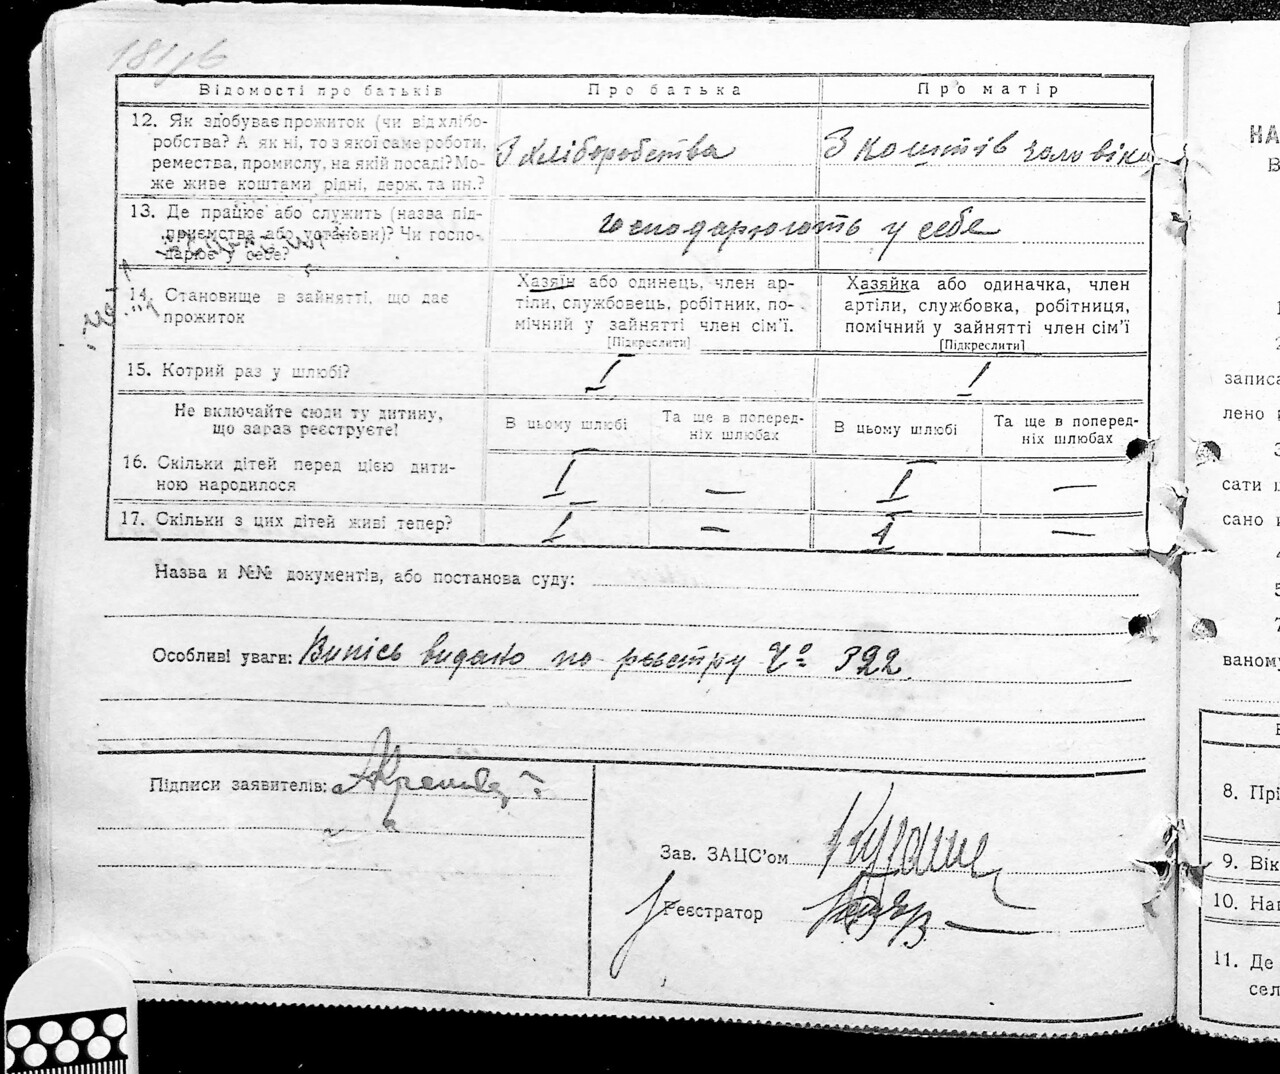 181/26
Відомості про батьків Про батька Про матір
12. Як здобуває прожиток (чи від хлібо-
робства? А як ні, то з якої саме роботи,
ремества, промислу, на якій посаді? Мо-
же живе коштами рідні, держ. та ин.?
З хліборобства З коштів чоловіка
13. Де працює або служить (назва під-
приємства або установи)? Чи госпо-
дарює у себе?
господарюють у себе
14. Становище в зайнятті, що дає
прожиток
Хазяїн або одинець, член ар-
тіли, службовець, робітник, по-
мічний у зайнятті член сім'ї.
[Підкреслити]
Хазяйка або одиначка, член
артіли, службовка, робітниця,
помічний у зайнятті член сім'ї
[Підкреслити]
15. Котрий раз у шлюбі? I I
Не включайте сюди ту дитину,
що зараз реєструєте!
В цьому шлюбі
Та ще в поперед-
ніх шлюбах
В цьому шлюбі
Та ще в поперед-
ніх шлюбах
16. Скільки дітей перед цією дити-
ною народилося
I — I —
17. Скільки з цих дітей живі тепер? 1 — 1 —
Назва и №№ документів, або постанова суду:
Особливі уваги: Випісь видано по реєстру Чо 322.
Підписи заявителів:
Зав. ЗАЦС'ом
Реєстратор
НА
В
записа
лено
сати
сано
5
7
ваному
8. Прі
9. Вік
10. На
11. Де
сел